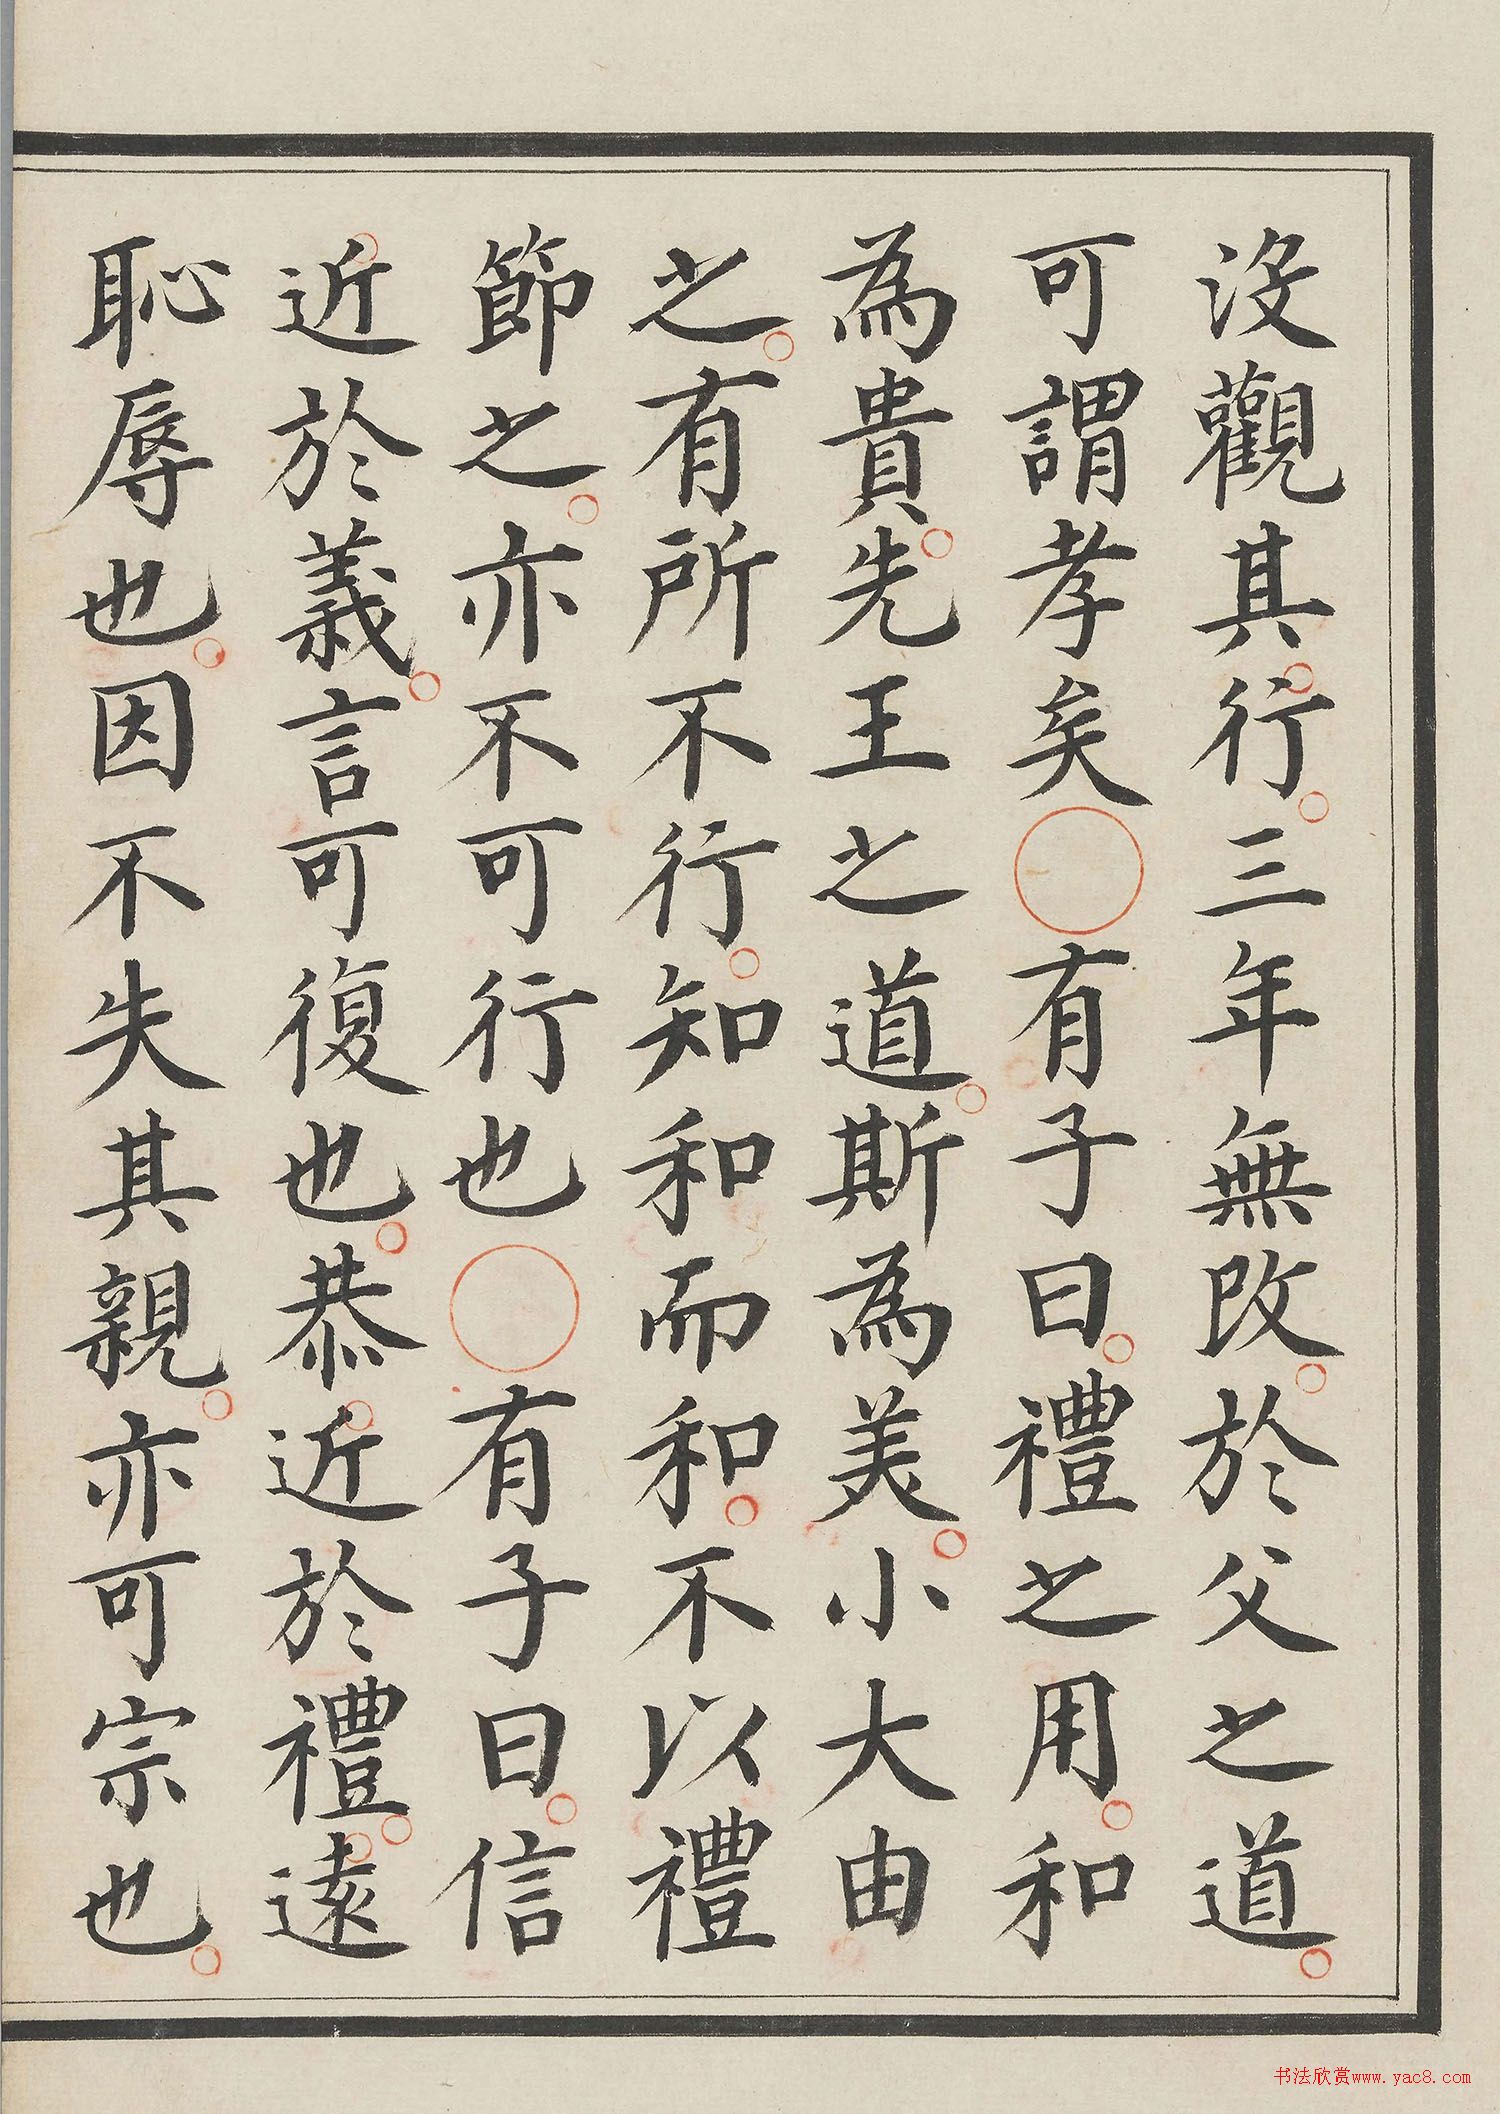 沒觀其行三年無改於父之道
可謂孝矣○有子曰禮之用和
為貴先王之道斯為美小大由
之有所不行知和而和不以禮
節之亦不可行也○有子曰信
近於義言可復也恭近於禮遠
恥辱也因不失其親亦可宗也
书法欣赏www.yac8.com